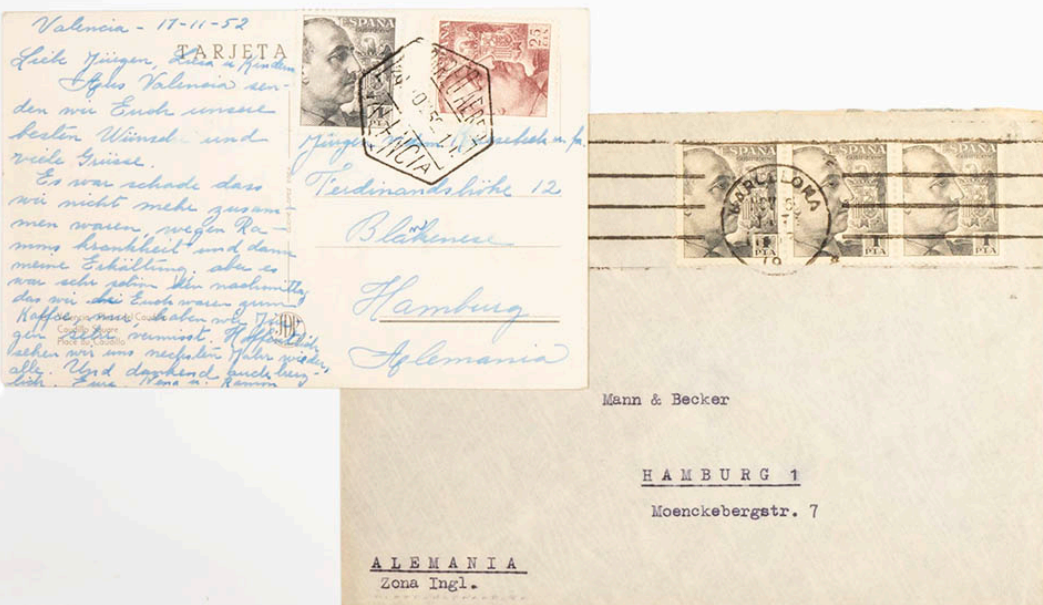 Valencia - 17-11-52
TARJETA
Liebe Jürgen, Luisa u. Kindern
Aus Valencia sen-
den wir Euch unsere
besten Wünsche und
viele Grüsse.
Es war schade dass
wir nicht mehr zusam-
men waren, wegen Ra-
mons krankheit und dann
meine Erkältung, aber es
war sehr schön den nachmittag
das wir bei Euch waren zum
Kaffee nur, haben wir Jür-
gen sehr vermisst. Hoffentlich
sehen wir uns nechsten Jahr wieder
alle. Und dankend auch herz-
lich. Eure Nena u. Ramon
Caudillo Square
Place du Caudillo
ESPAÑA
ESPAÑA
25
CTS
CORREO AEREO
VALENCIA
Jürgen
Ferdinandshöhe 12
Blankenese
Hamburg
Aglemania
ESPAÑA
ESPAÑA
ESPAÑA
1
PTA
1
PTA
1
PTA
BARCELONA
Mann & Becker
HAMBURG 1
Moenckebergstr. 7
ALEMANIA
Zona Ingl.